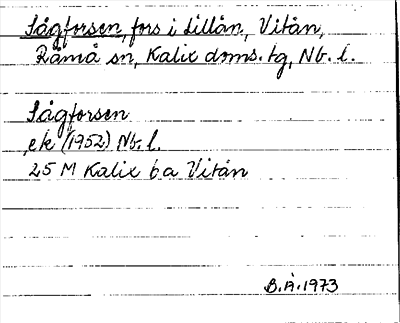 Sågforsen, fors i Lillån, Vitån,
Råneå sn, Kalix doms. tg, Nb. l.
Sågforsen
,ek (1952) Nb. l.
25 M Kalix 6a Vitån
B.Å.1973